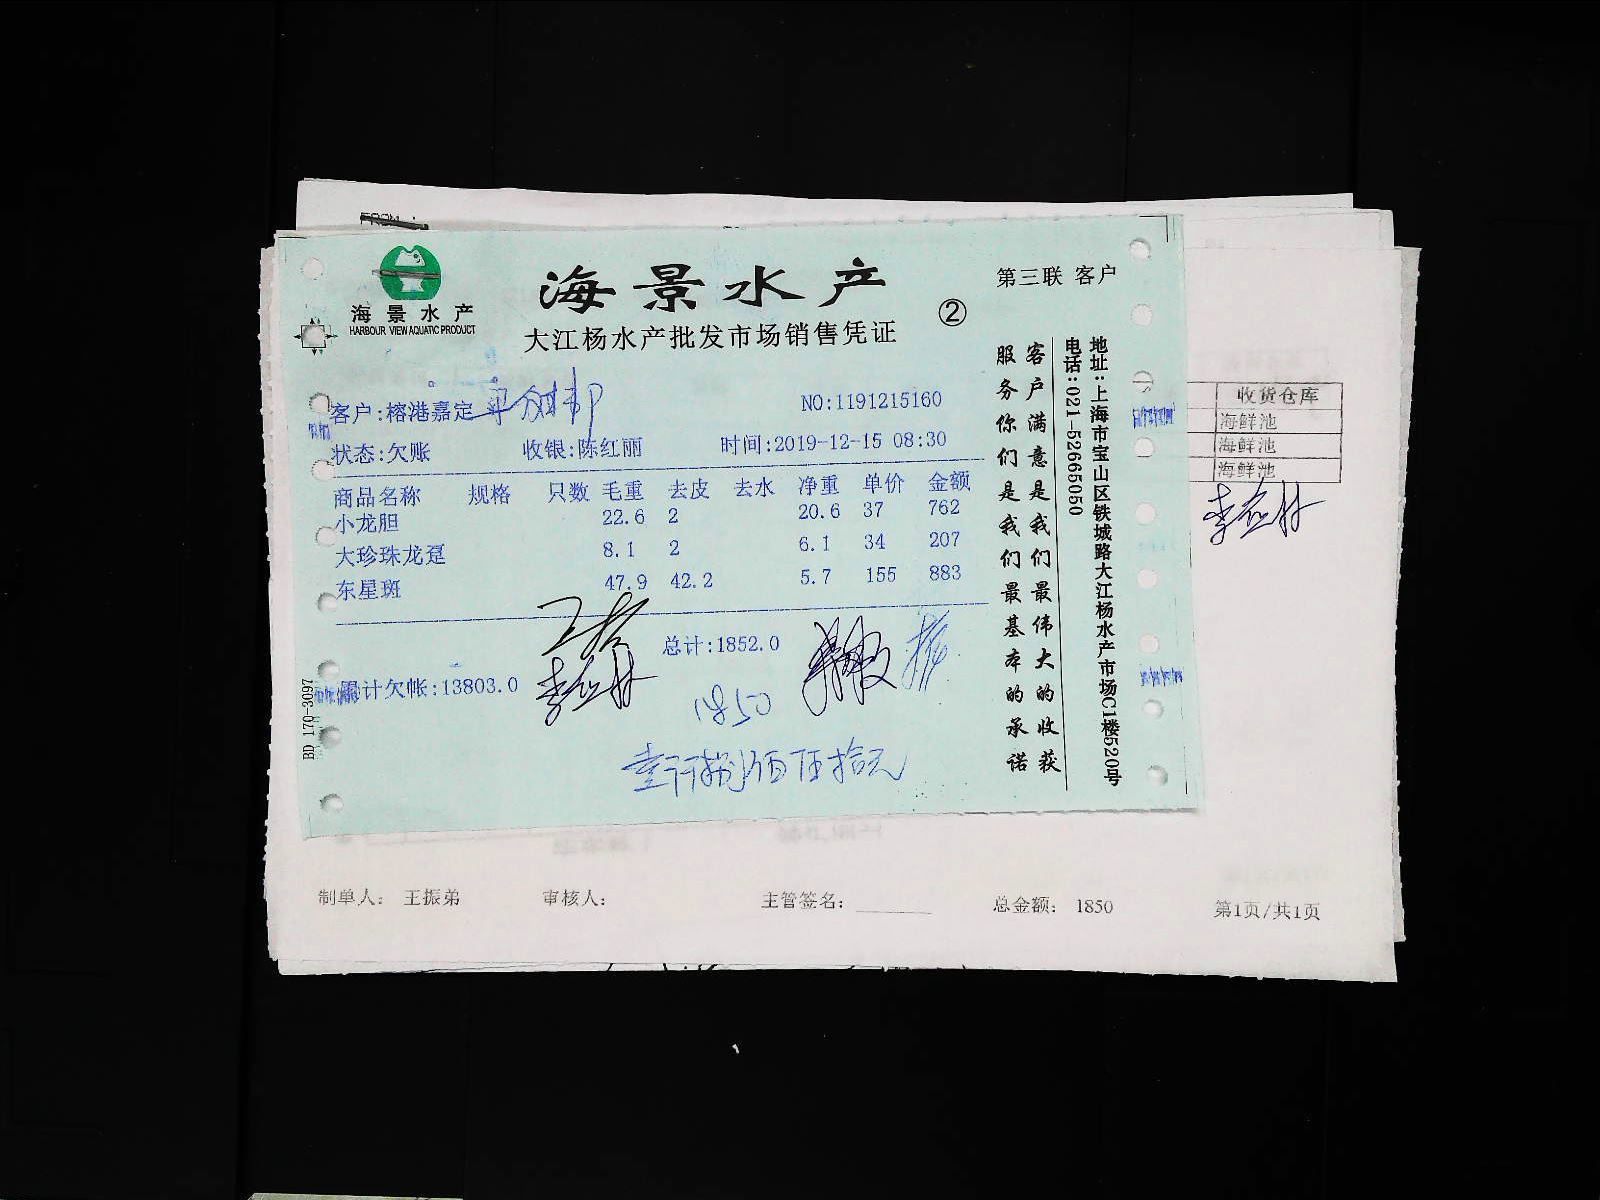 海景水产
HARBOUR VIEW AQUATIC PRODUCT
海景水产
大江杨水产批发市场销售凭证
②
第三联 客户
客户:榕港嘉定
NO:1191215160
状态:欠账 收银:陈红丽 时间:2019-12-15 08:30
商品名称 规格 只数 毛重 去皮 去水 净重 单价 金额
小龙胆 22.6 2 20.6 37 762
大珍珠龙趸 8.1 2 6.1 34 207
东星斑 47.9 42.2 5.7 155 883
总计:1852.0
累计欠帐:13803.0
1850
壹仟捌佰伍拾元
客户满意是我们最伟大的收获
服务你们是我们最基本的承诺
地址:上海市宝山区铁城路大江杨水产市场C1楼520号
电话:021-52665050
BD 170-3097
收货仓库
海鲜池
海鲜池
海鲜池
制单人: 王振弟 审核人: 主管签名: 总金额: 1850 第1页/共1页